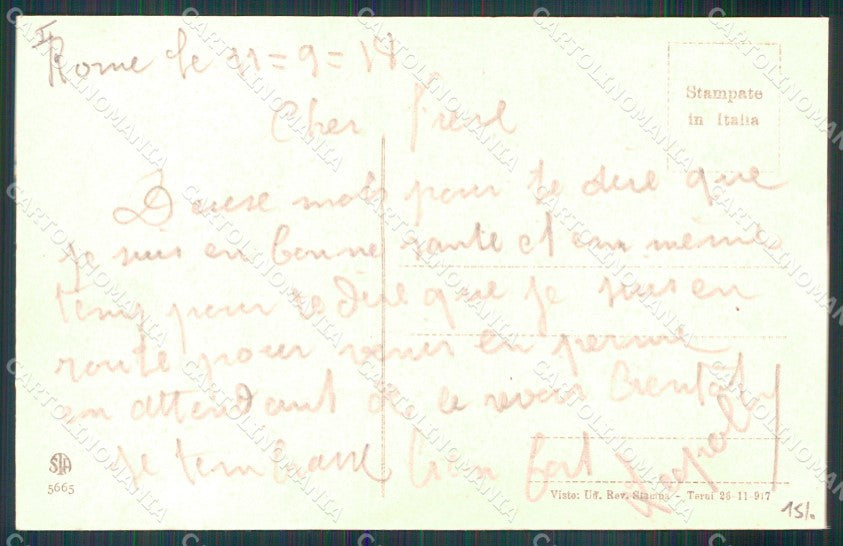 Rome le 11=9=18
Stampate
in Italia
Cher frere
Deuse mots pour te dire que
je suis en bonne sante et em même
temp pour te dire que je suis en
route pour venir en perme
en attendant de te revoir bientot
je tembrasse bien fort
STA
5665
Visto: Uff. Rev. Stampa - Terni 26-11-917
15/.
CARTOLINOMANIA